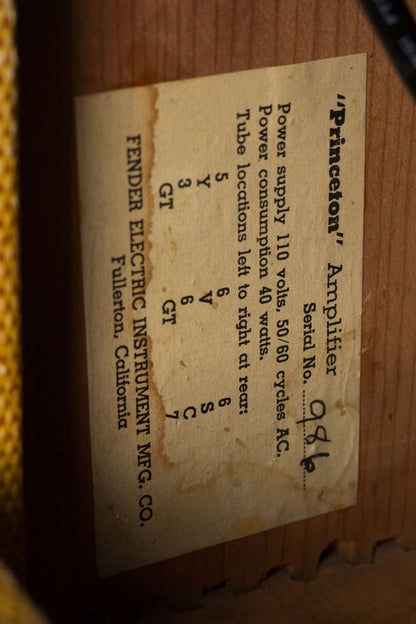 "Princeton" Amplifier
Serial No. ........986
Power supply 110 volts, 50/60 cycles AC.
Power consumption 40 watts.
Tube locations left to right at rear:
5 6 6
Y V S
3 6 C
GT GT 7
FENDER ELECTRIC INSTRUMENT MFG. CO.
Fullerton, California